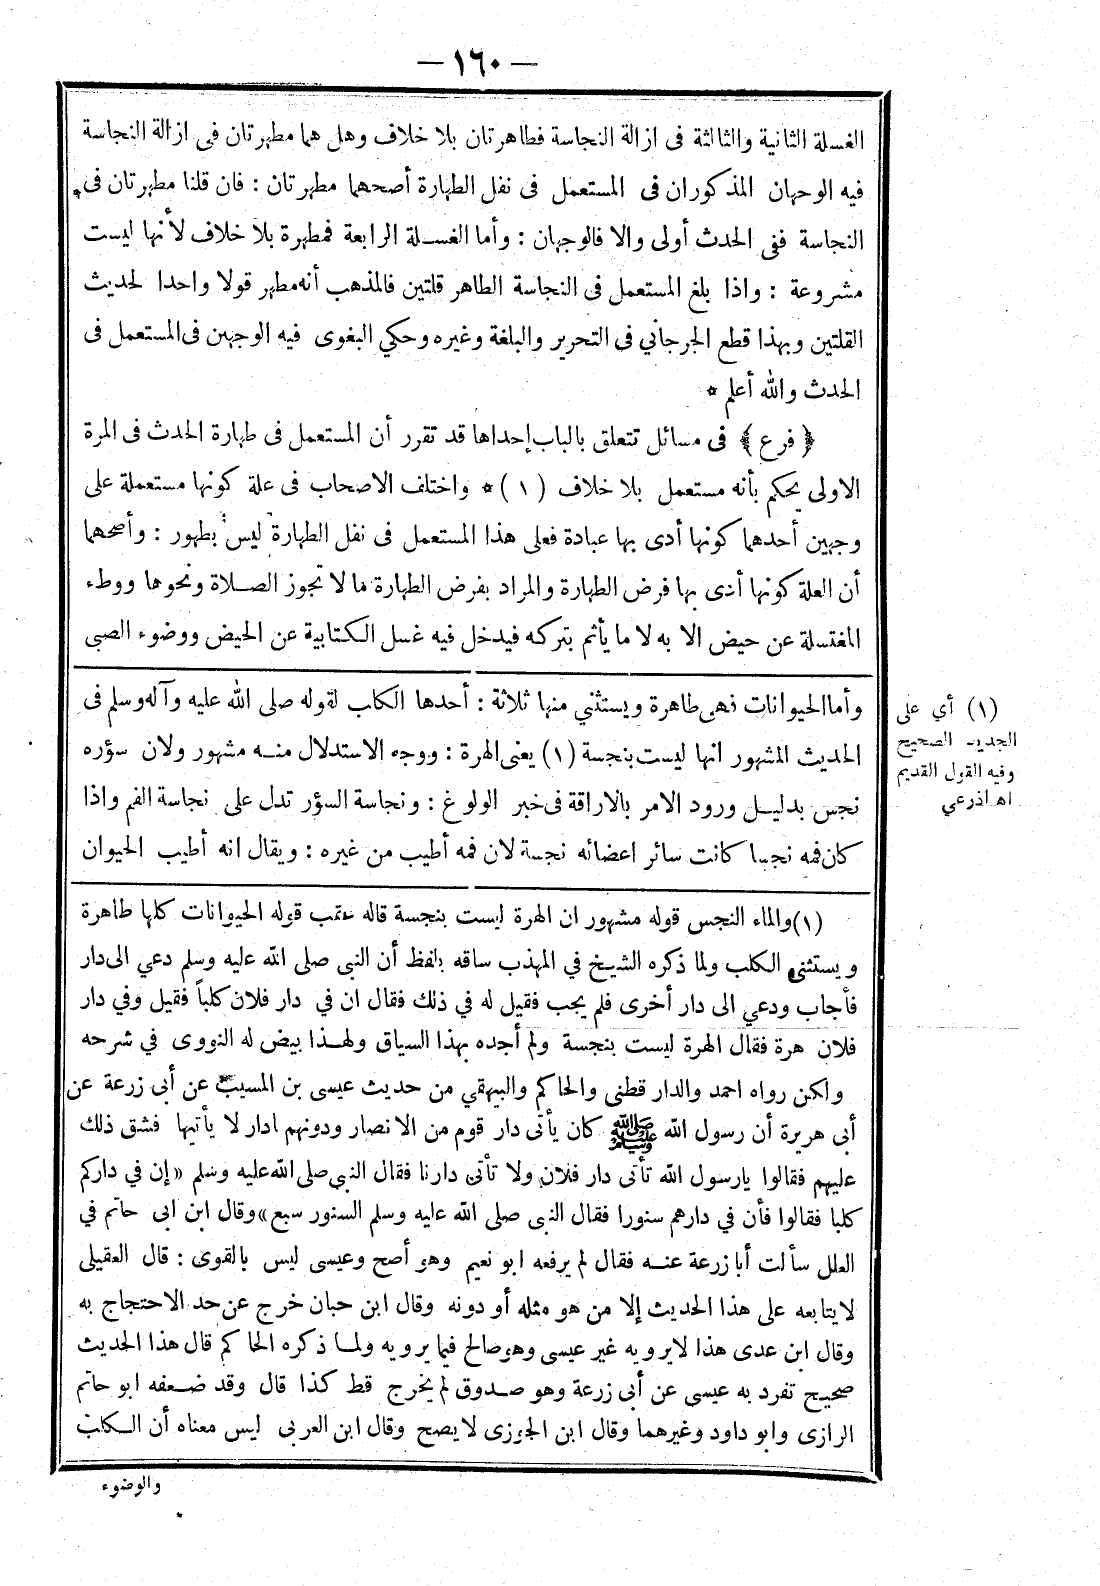 — ١٦٠ —
الغسلة الثانية والثالثة فى ازالة النجاسة فطاهرتان بلا خلاف وهل هما مطهرتان فى ازالة النجاسة
فيه الوجهان المذكوران فى المستعمل فى نفل الطهارة أصحهما مطهرتان : فان قلنا مطهرتان فى
النجاسة ففى الحدث أولى والا فالوجهان : وأما الغسلة الرابعة فمطهرة بلا خلاف لأنها ليست
مشروعة : واذا بلغ المستعمل فى النجاسة الطاهر قلتين فالمذهب أنه مطهر قولا واحدا لحديث
القلتين وبهذا قطع الجرجاني فى التحرير والبلغة وغيره وحكي البغوى فيه الوجهين فى المستعمل فى
الحدث والله أعلم *
﴿ فرع ﴾ فى مسائل تتعلق بالباب إحداها قد تقرر أن المستعمل فى طهارة الحدث فى المرة
الاولى يحكم بأنه مستعمل بلا خلاف (١) * واختلف الاصحاب فى علة كونها مستعملة على
وجهين أحدهما كونها أدى بها عبادة فعلى هذا المستعمل فى نفل الطهارة ليس بطهور : وأصحهما
أن العلة كونها أدى بها فرض الطهارة والمراد بفرض الطهارة ما لا تجوز الصلاة ونحوها ووطء
المغتسلة عن حيض الا به لا ما يأثم بتركه فيدخل فيه غسل الكتابية عن الحيض ووضوء الصبى
وأما الحيوانات فهى طاهرة ويستثني منها ثلاثة : أحدها الكاب لقوله صلى الله عليه وآله وسلم فى
الحديث المشهور انها ليست بنجسة (١) يعنى الهرة : ووجه الاستدلال منه مشهور ولان سؤره
نجس بدليل ورود الامر بالاراقة فى خبر الولوغ : ونجاسة السؤر تدل على نجاسة الفم واذا
كان فمه نجسا كانت سائر اعضائه نجسة لان فمه أطيب من غيره : ويقال انه أطيب الحيوان
(١) أي على
الجديد الصحيح
وفيه القول القديم
اه اذرعي
(١) والماء النجس قوله مشهور ان الهرة ليست بنجسة قاله عقب قوله الحيوانات كلها طاهرة
ويستثنى الكلب ولما ذكره الشيخ في المهذب ساقه بلفظ أن النبي صلى الله عليه وسلم دعي الى دار
فأجاب ودعي الى دار أخرى فلم يجب فقيل له في ذلك فقال ان في دار فلان كلباً فقيل وفي دار
فلان هرة فقال الهرة ليست بنجسة ولم أجده بهذا السياق ولهذا بيض له النووى في شرحه
ولكن رواه احمد والدار قطني والحاكم والبيهقي من حديث عيسى بن المسيب عن أبى زرعة عن
أبى هريرة أن رسول الله ﷺ كان يأتى دار قوم من الانصار ودونهم ادار لا يأتيها فشق ذلك
عليهم فقالوا يارسول الله تأتى دار فلان ولا تأتى دارنا فقال النبي صلى الله عليه وسلم «إن في داركم
كلبا فقالوا فأن في دارهم سنورا فقال النبى صلى الله عليه وسلم السنور سبع» وقال ابن ابى حاتم في
العلل سألت أبا زرعة عنه فقال لم يرفعه ابو نعيم وهو أصح وعيسى ليس بالقوى : قال العقيلى
لا يتابعه على هذا الحديث إلا من هو مثله أو دونه وقال ابن حبان خرج عن حد الاحتجاج به
وقال ابن عدى هذا لايرويه غير عيسى وهو صالح فيما يرويه ولما ذكره الحاكم قال هذا الحديث
صحيح تفرد به عيسى عن أبى زرعة وهو صدوق لم يخرج قط كذا قال وقد ضعفه ابو حاتم
الرازى وابو داود وغيرهما وقال ابن الجوزى لا يصح وقال ابن العربى ليس معناه أن الكلب
والوضوء